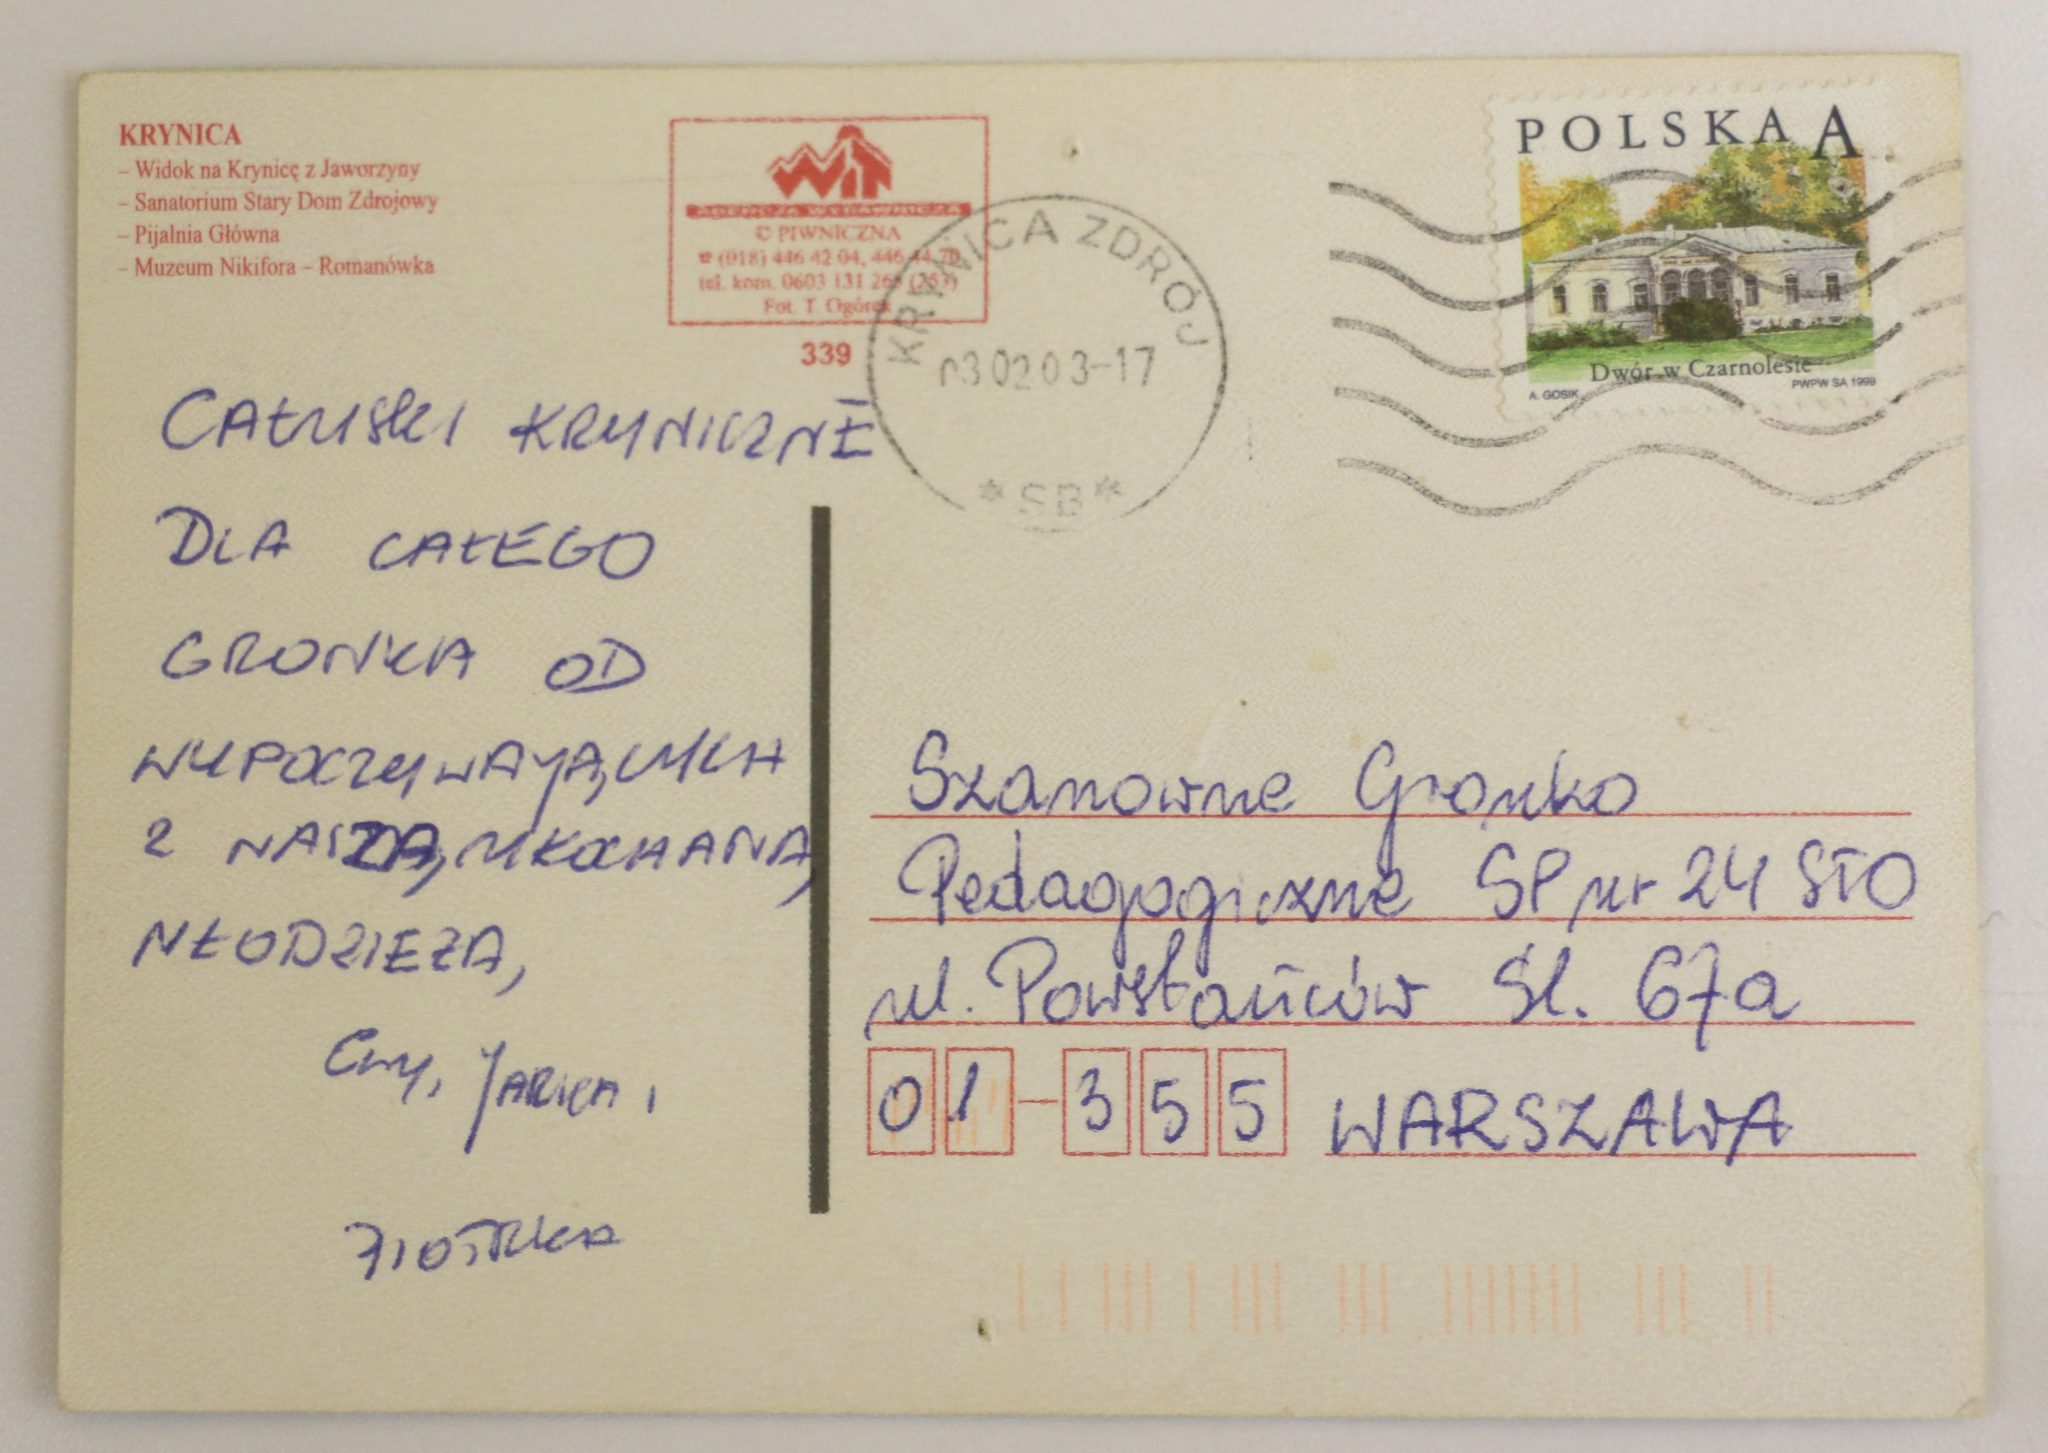 KRYNICA
– Widok na Krynicę z Jaworzyny
– Sanatorium Stary Dom Zdrojowy
– Pijalnia Główna
– Muzeum Nikifora – Romanówka
WiT
AGENCJA WYDAWNICZA
© PIWNICZNA
☎ (018) 446 42 04, 446 44 70
tel. kom. 0603 131 265 (253)
Fot. T. Ogórek
339
KRYNICA ZDRÓJ
030203-17
*SB*
POLSKA A
Dwór w Czarnolesie
A. GOSIK
PWPW SA 1998
CAŁUSKI KRYNICZNE
DLA CAŁEGO
GRONKA OD
WYPOCZYWAJĄCYCH
Z NASZĄ UKOCHANĄ
MŁODZIEŻĄ
JARKA i
PIOTRKA
Szanowne Gronko
Pedagogiczne SP nr 24 STO
ul. Powstańców Śl. 67a
01-355 WARSZAWA